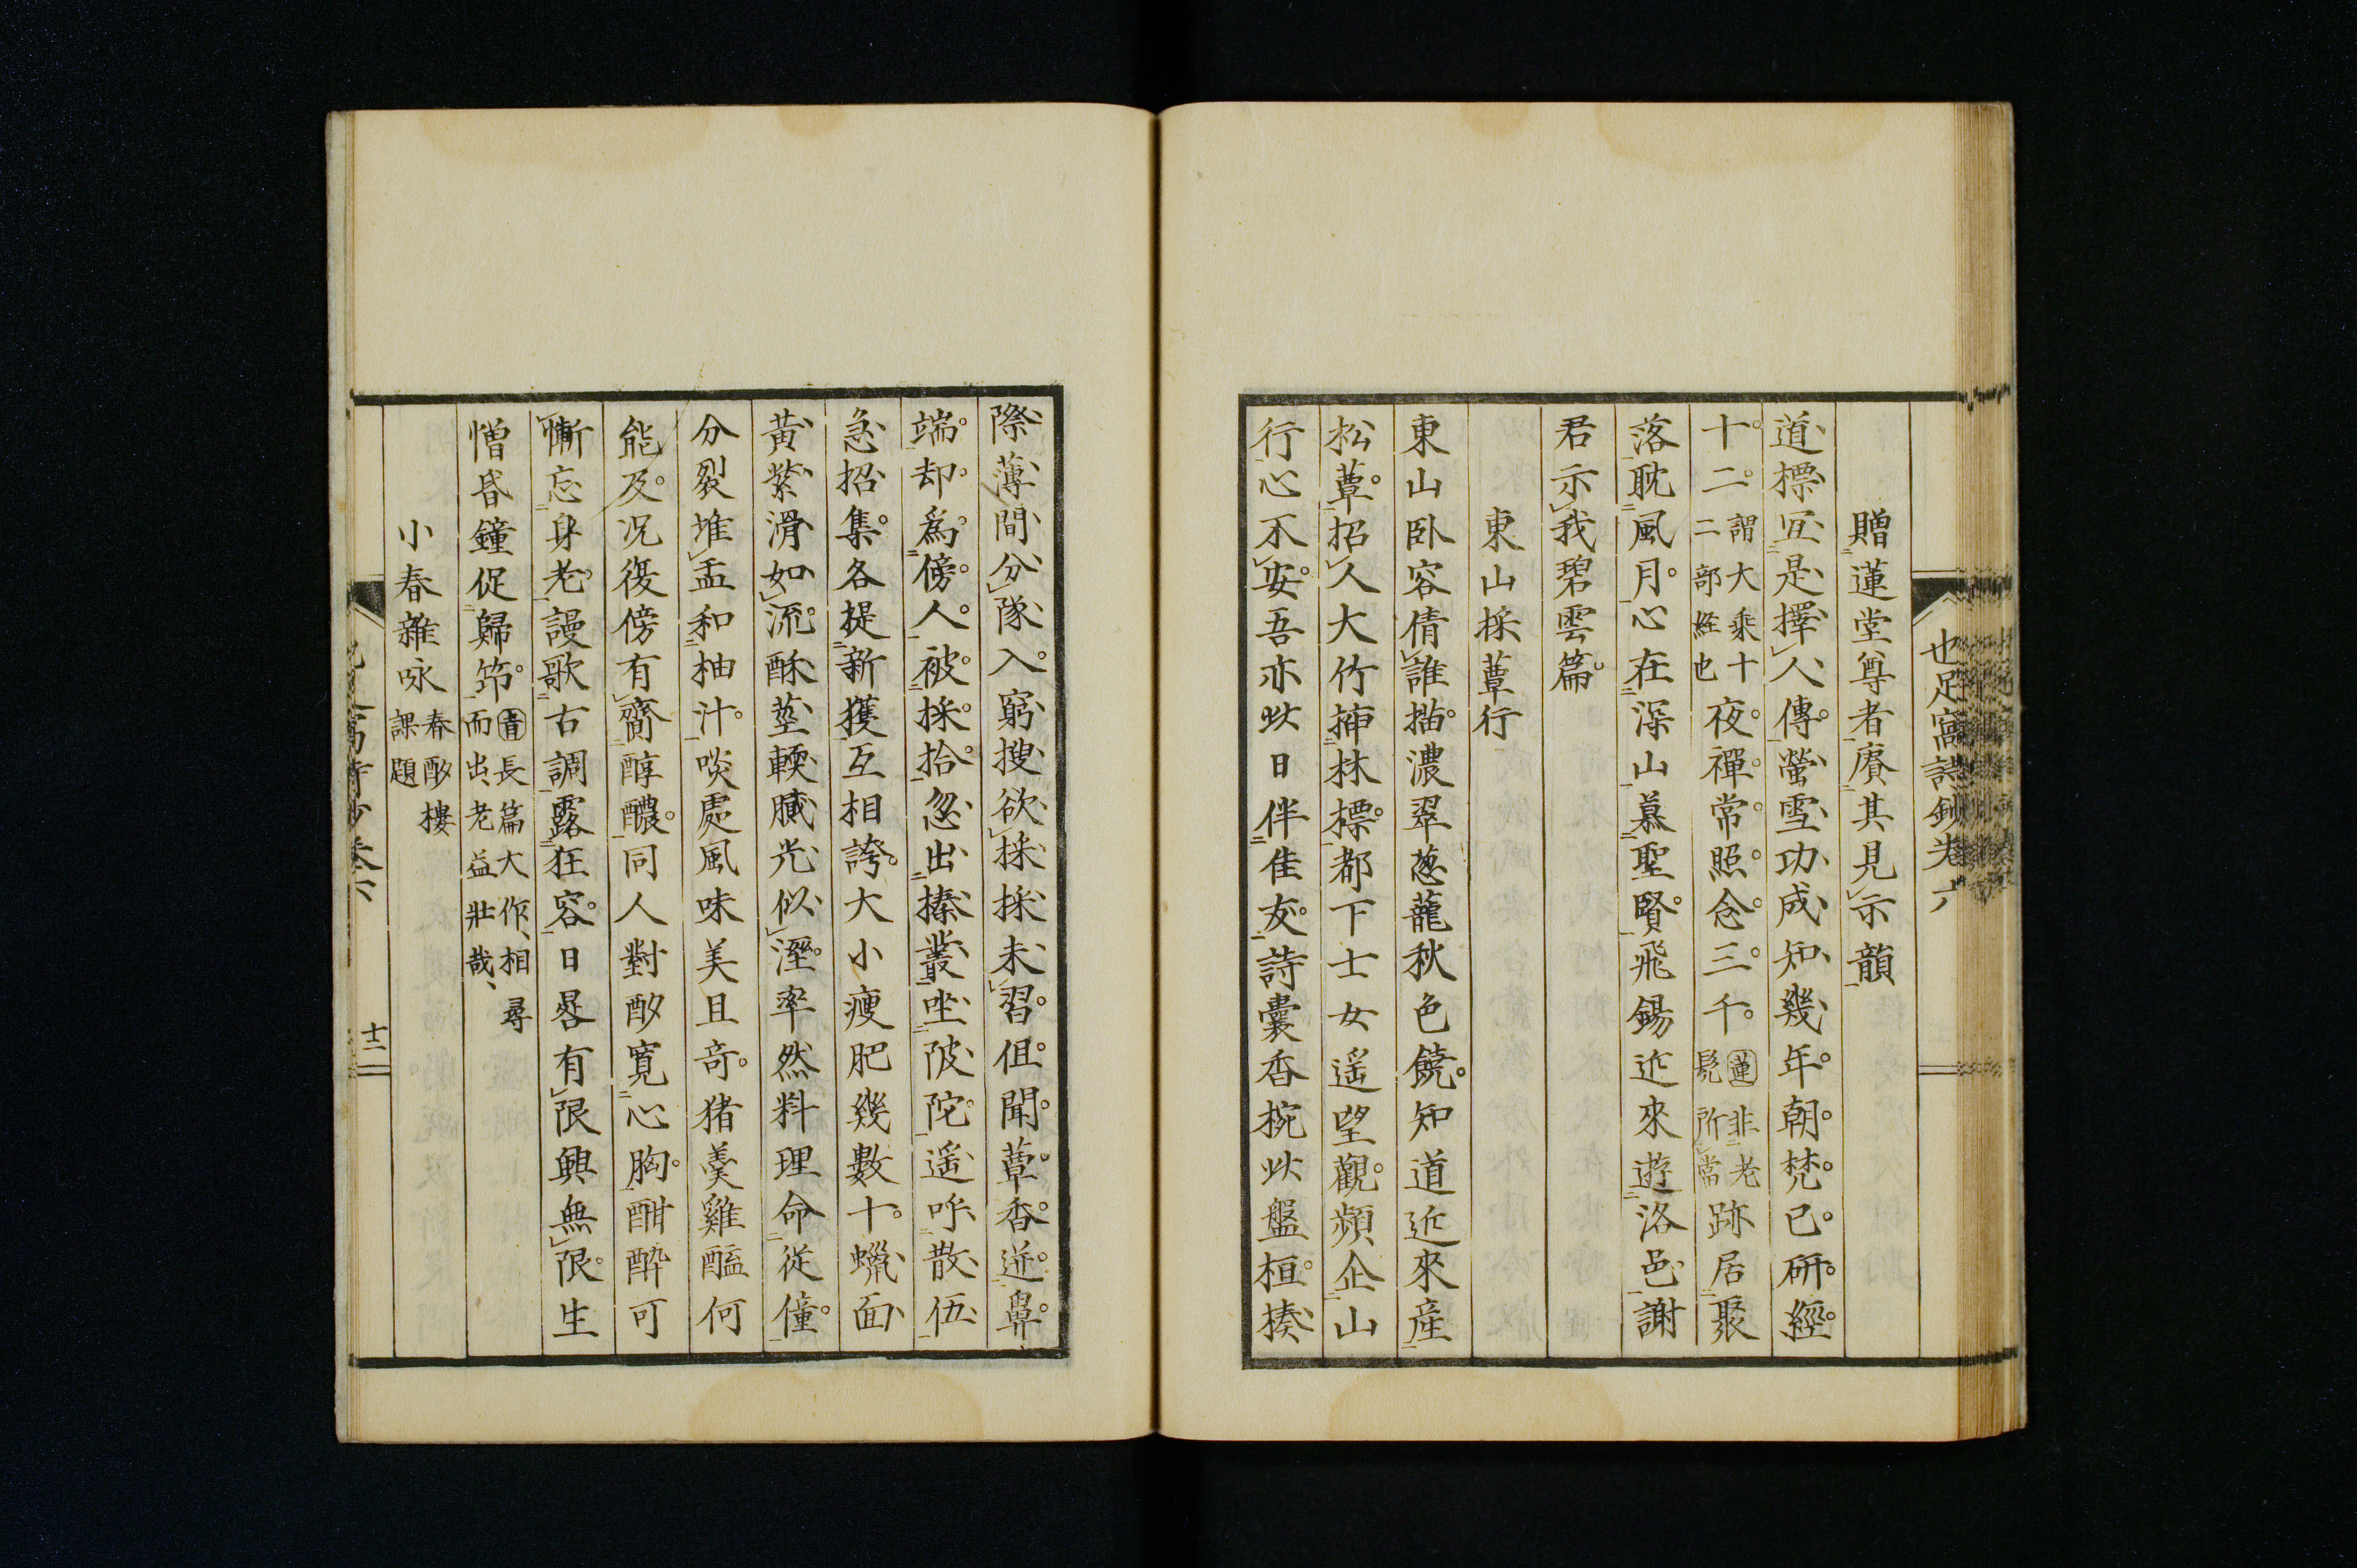 也足窩詩鈔卷六
贈蓮堂尊者賡其見示韻
道標宜是擇人傳螢雪功成知幾年朝梵已研經
十二謂大乘十二部經也夜禪常照念三千蓮非老髡所當跡居聚
落耽風月心在深山慕聖賢飛錫近來遊洛邑謝
君示我碧雲篇
東山採蕈行
東山臥容倩誰描濃翠葱蘢秋色饒知道近來產
松蕈招人大竹揷林標都下士女遥望觀頻企山
行心不安吾亦此日伴佳友詩囊香椀此盤桓榛
際薄間分隊入窮搜欲採採未習但聞蕈香迸鼻
端却爲傍人被採拾忽出榛叢坐陂陀遥呼散伍
急招集各提新獲互相誇大小瘦肥幾數十蠟面
黄紫滑如流酥莖輭膩光似溼率然料理命從僮
分裂堆盂和柚汁啖處風味美且奇猪羹雞醢何
能及况復傍有齎醇醲同人對酌寬心胸酣醉可
慚忘身老謾歌古調露狂容日晷有限興無限生
憎昏鐘促歸筇青長篇大作相尋而出老益壯哉
小春雜咏春酌樓課題
十二